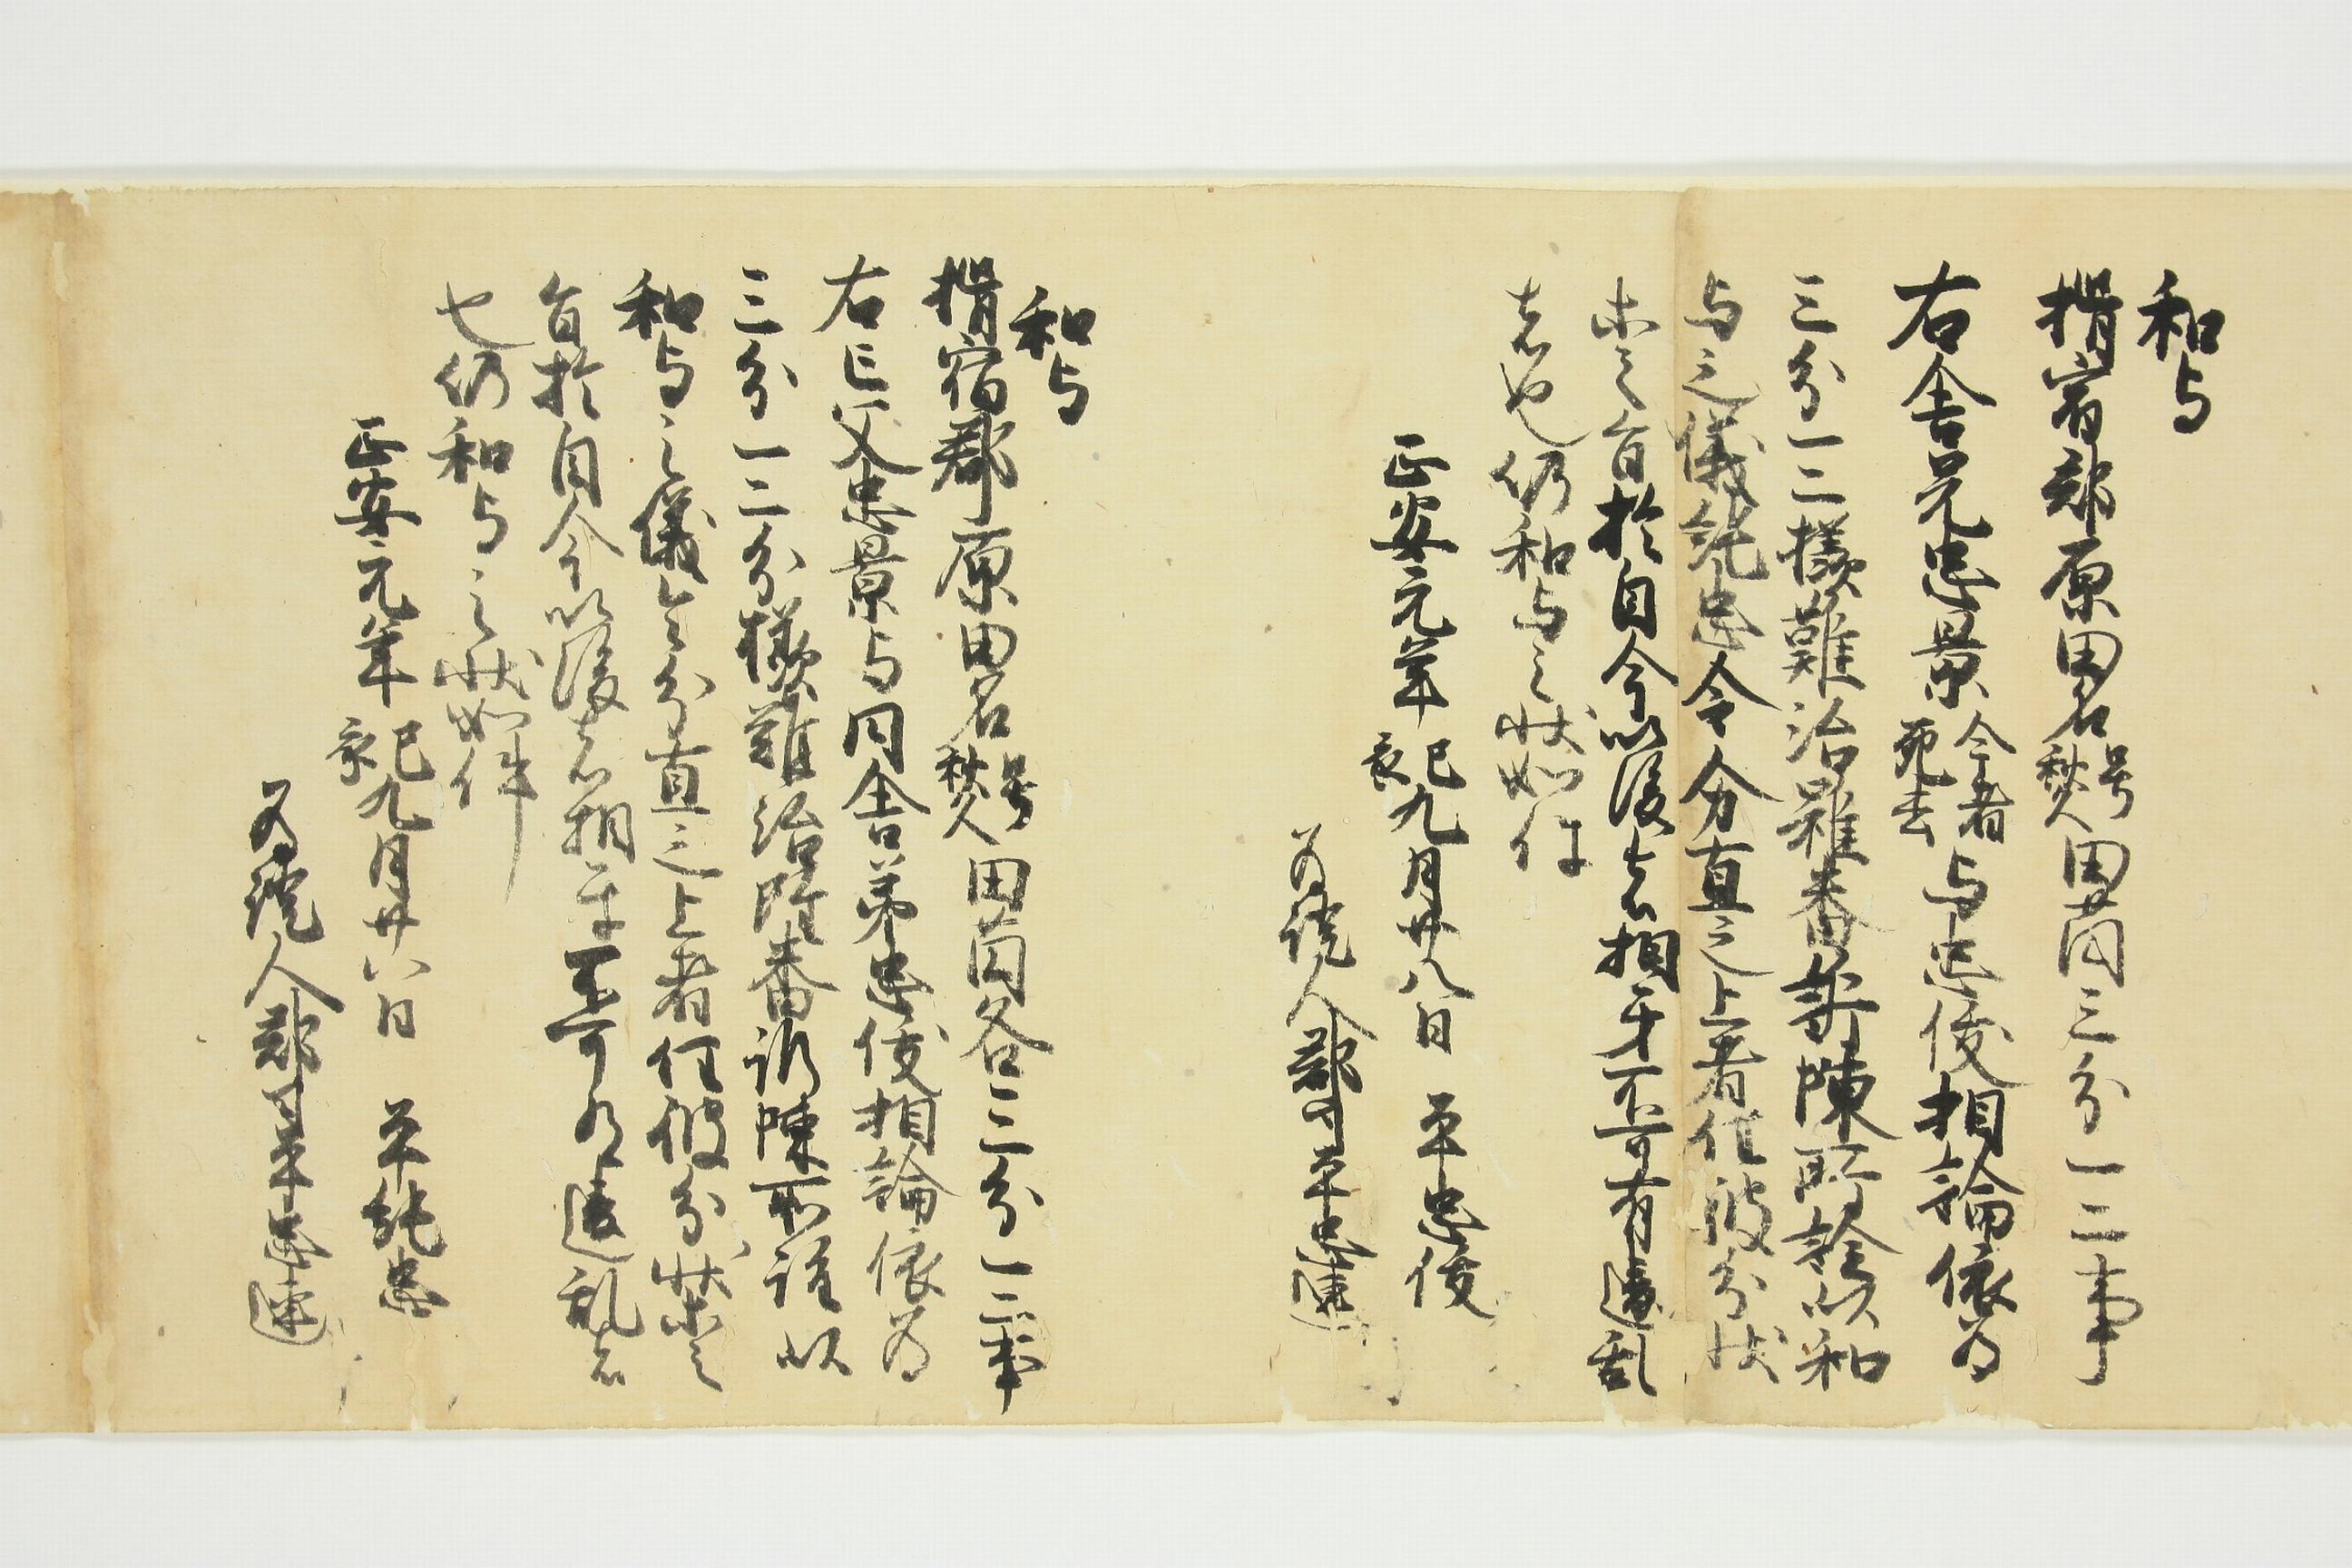 和与
揖宿郡原田名号秋久田薗三分一二事
右舎兄忠景今者死去与忠俊相論依為
三分一二様難治雖番訴陳所詮以和
与之儀純忠令分直之上者任彼分状
等之旨於自今以後者相互不可有違乱
者也仍和与之状如件
正安元年己亥九月廿八日 平忠俊
為証人郡司平忠連
和与
揖宿郡原田名号秋久田薗各三分一二事
右亡父忠景与同舎弟忠俊相論依為
三分一二分様難治雖番訴陳所詮以
和与之儀令分直之上者任彼分状等之
旨於自今以後者相互不可有違乱者
也仍和与之状如件
正安元年己亥九月廿八日 平純忠
為証人郡司平忠連